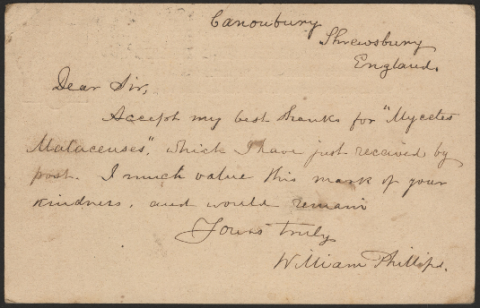 Canonbury
Shrewsbury
England.
Dear Sir,
Accept my best thanks for "Mycetes
Malacenses", which I have just received by
post. I much value this mark of your
kindness, and would remain
Yours truly
William Phillips.